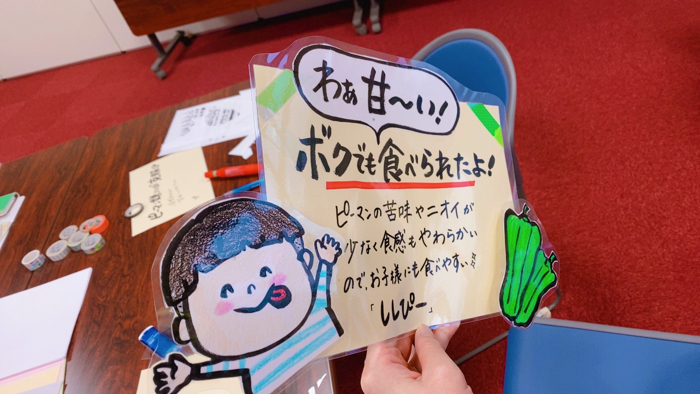 わぁ 甘〜い!
ボクでも食べられたよ!
ピーマンの苦味やニオイが
少なく食感もやわらかい
ので、お子様にも食べやすい!!
「ししぴー」